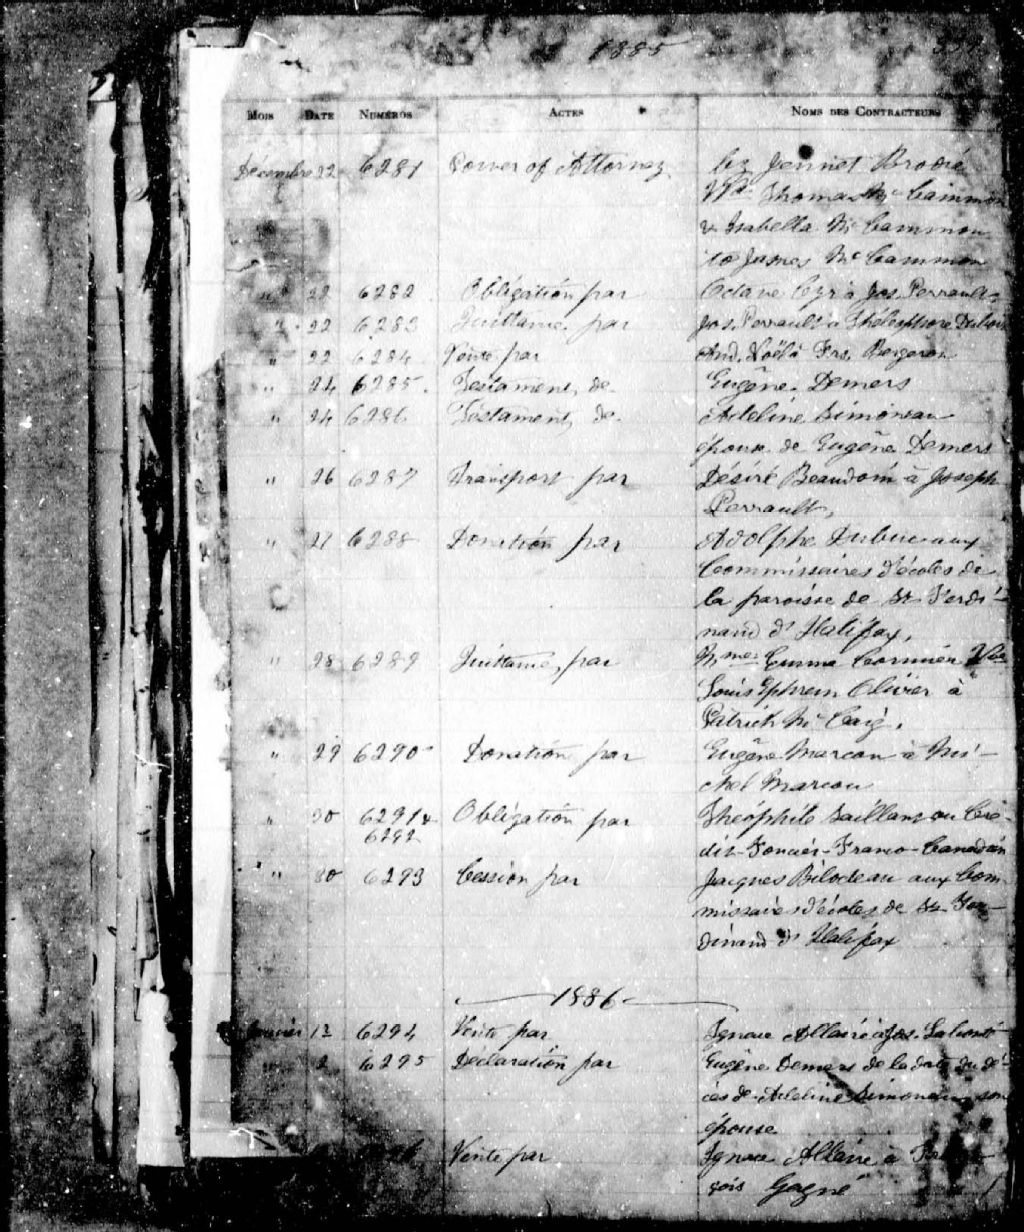 1885
MOIS DATE NUMÉROS ACTES NOMS DES CONTRACTEURS
Décembre 22 6281 Power of Attorney by Jennet Brodie
Vve Thomas Mc Cammon
& Isabella Mc Cammon
to James Mc Cammon
" 22 6282 Obligation par Octave Cyr à Jos. Perrault
" 22 6283 Quittance par Jos. Perrault à Thélesphore Dubois
" 22 6284 Vente par And. Noël à Frs. Bergeron
" 24 6285 Testament de Eugène Demers
" 24 6286 Testament de Adeline Simoneau
épouse de Eugène Demers
" 26 6287 Transport par Désiré Beaudoin à Joseph
Perrault,
" 27 6288 Donation par Adolphe Dubuc aux
Commissaires d'écoles de
la paroisse de St Ferdi-
nand d'Halifax,
" 28 6289 Quittance par Emma Cormier Vve
Louis Ephrem Olivier à
Patrick Mc Caig.
" 29 6290 Donation par Eugène Marcou à Mi-
chel Marcou
" 30 6291 & Obligation par Théophile Saillant au Cré-
6292 dit-Foncier-Franco-Canadien
" 30 6293 Cession par Jacques Bilodeau aux Com-
missaires d'écoles de St Fer-
dinand d'Halifax
1886
Janvier 12 6294 Vente par Ignace Allaire à Jos. Labonté
" 2 6295 Déclaration par Eugène Demers de la date du dé-
cès de Adeline Simoneau son
épouse
Vente par Ignace Allaire à Fran-
çois Gagné